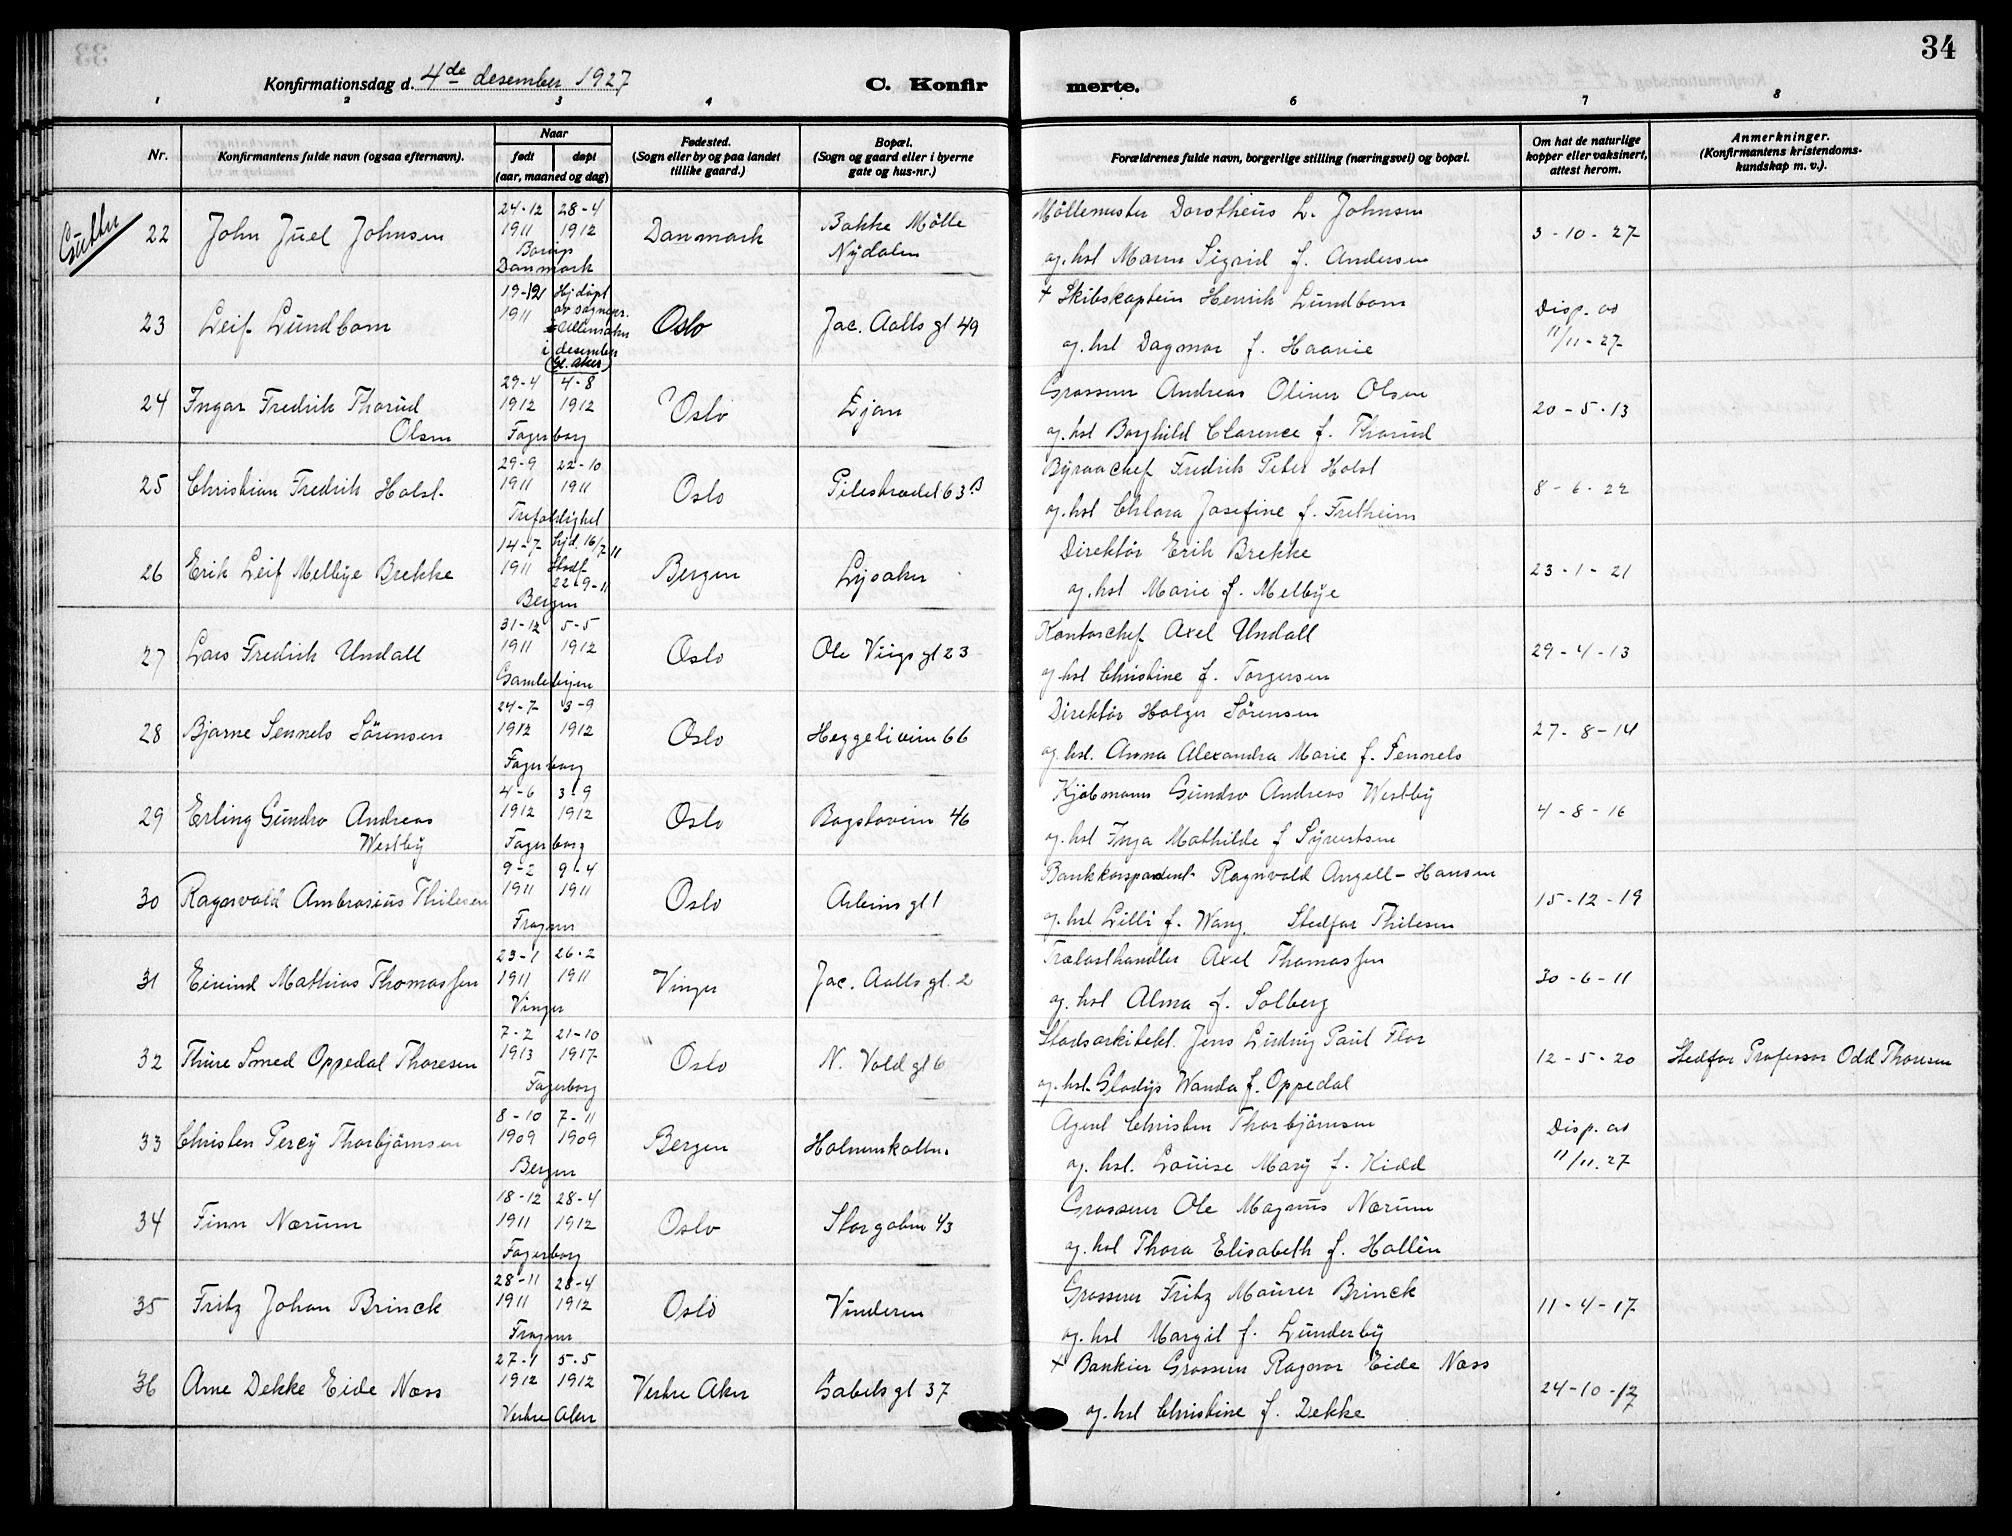 34
Konfirmationsdag d. 4de desember 1927
C. Konfirmerte.
1 2 3 4 5 6 7 8
Nr.
Konfirmantens fulde navn (ogsaa efternavn).
Naar
født døpt
(aar, maaned og dag)
Fødested.
(Sogn eller by og paa landet
tillike gaard.)
Bopæl.
(Sogn og gaard eller i byerne
gate og hus-nr.)
Forældrenes fulde navn, borgerlige stilling (næringsvei) og bopæl.
Om hat de naturlige
kopper eller vaksinert,
attest herom.
Anmerkninger.
(Konfirmantens kristendoms-
kundskap m. v.).
Gutter
22 John Juel Johnsen
24-12 1911 28-4 1912
Danmark
Danmark
Bakke Mölle
Nydalen
Möllemester Dorotheus L. Johnsen
og. hst Maren Sigrid f. Andersen
3-10-27
23 Leif Lundbom
19-12 1911 Hj. döpt
av sogнepr.
i desember
(Gl. Aker)
Oslo
Jac. Aalls gt 49
+ Skibskaptein Henrik Lundbom
og. hst Dagmar f. Haavie
Disp. av
11/11-27
24 Ingar Fredrik Thorud
Olsen
29-4 1912 4-8 1912
Fagerborg
Oslo
Ljan
Grosserer Andreas Oliver Olsen
og. hst Borghild Clarence f. Thorud
20-5-13
25 Christian Fredrik Holst
29-9 1911 22-10 1911
Trefoldighet
Oslo
Pilestrædet 63 B
Byraachef Fredrik Peter Holst
og. hst Chlara Josefine f. Fretheim
8-6-22
26 Erik Leif Melbye Brekke
14-7 1911 hjd. 16/7-11
Stadf.
22-9-11
Bergen
Bergen
Lysaker
Direktör Erik Brekke
og. hst Marie f. Melbye
23-1-21
27 Lars Fredrik Undall
31-12 1911 5-5 1912
Gamlebyen
Oslo
Ole Viigs gt 23
Kontorchef Axel Undall
og hst Christine f. Torgersen
29-4-13
28 Bjarne Sennels Sörensen
24-7 1912 3-9 1912
Fagerborg
Oslo
Heggeliveien 66
Direktör Holger Sörensen
og. hst. Anna Alexandra Marie f. Sennels
27-8-14
29 Erling Gundro Andreas
Westby
4-6 1912 3-9 1912
Fagerborg
Oslo
Bogstadveien 46
Kjöbmann Gundro Andreas Westby
og. hst Inga Mathilde f Syvertsen
4-8-16
30 Ragnvald Ambrosius Thilesen
9-2 1911 9-4 1911
Frogner
Oslo
Arbins gt 1
Bankkorspondent Ragnvald Angell-Hansen
og. hst Lilli f. Wang. Stedfar Thilesen
15-12-19
31 Eivind Mathias Thomassen
23-1 1911 26-2 1911
Vinger
Vinger
Jac. Aalls gt. 2
Trælasthandler Axel Thomassen
og. hst Alma f. Solberg
30-6-11
32 Thure Smed Oppedal Thoresen
7-2 1913 21-10 1917
Fagerborg
Oslo
N. Vold gt 6
Stadsarkitekt. Jens Ludvig Paul Flor
og. hst. Gladys Wanda f. Oppedal
12-5-20
Stedfar Professor Odd Thoresen
33 Christen Percy Thorbjörnsen
8-10 1909 7-11 1909
Bergen
Bergen
Holmenkollen.
Agent Christen Thorbjörnsen
og. hst. Louise Mary f. Kidd
Disp. av
11/11.27
34 Finn Nærum
18-12 1911 28-4 1912
Fagerborg
Oslo
Storgaten 43
Grosserer Ole Magnus Nærum
og. hst Thora Elisabeth f. Hallén
35 Fritz Johan Brinck
28-11 1911 28-4 1912
Frogner
Oslo
Vinderen
Grosserer Fritz Maurer Brinck
og. hst Margit f. Lunderby
11-4-17
36 Arne Dekke Eide Næss
27-1 1912 5-5 1912
Vestre Aker
Vestre Aker
Gabels gt 37
+ Bankier Grosserer Ragnar Eide Næss
og. hst Christine f. Dekke
24-10-17